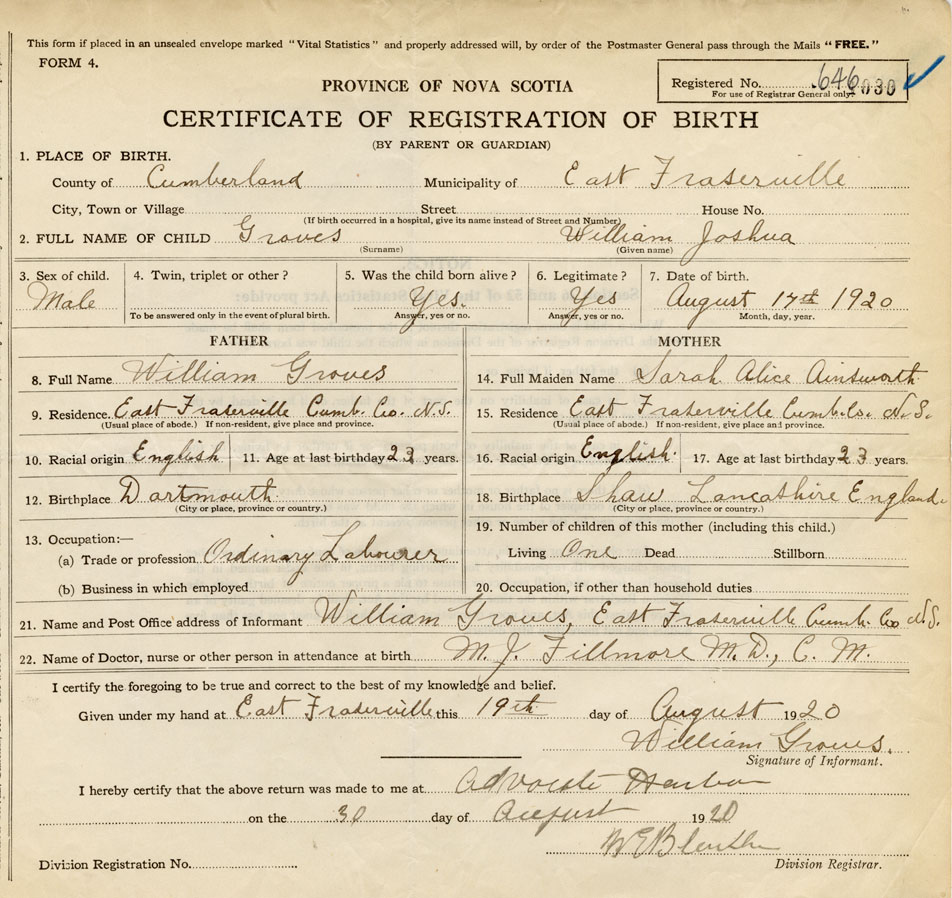 This form if placed in an unsealed envelope marked "Vital Statistics" and properly addressed will, by order of the Postmaster General pass through the Mails "FREE."
FORM 4.
Registered No. 646 030
For use of Registrar General only.
PROVINCE OF NOVA SCOTIA
CERTIFICATE OF REGISTRATION OF BIRTH
(BY PARENT OR GUARDIAN)
1. PLACE OF BIRTH.
County of Cumberland Municipality of East Fraserville
City, Town or Village Street House No.
(If birth occurred in a hospital, give its name instead of Street and Number)
2. FULL NAME OF CHILD Groves William Joshua
(Surname) (Given name)
3. Sex of child. 4. Twin, triplet or other? 5. Was the child born alive? 6. Legitimate? 7. Date of birth.
Male Yes. Yes August 17th 1920
To be answered only in the event of plural birth. Answer, yes or no. Answer, yes or no. Month, day, year.
FATHER MOTHER
8. Full Name William Groves 14. Full Maiden Name Sarah Alice Ainsworth
9. Residence. East Fraserville Cumb. Co. N.S. 15. Residence East Fraserville Cumb. Co. N.S.
(Usual place of abode.) If non-resident, give place and province. (Usual place of abode.) If non-resident, give place and province.
10. Racial origin English 11. Age at last birthday 23 years. 16. Racial origin English. 17. Age at last birthday 23 years.
12. Birthplace Dartmouth 18. Birthplace Shaw Lancashire England.
(City or place, province or country.) (City or place, province or country.)
13. Occupation:— 19. Number of children of this mother (including this child.)
(a) Trade or profession Ordinary Labourer Living One Dead Stillborn
(b) Business in which employed 20. Occupation, if other than household duties
21. Name and Post Office address of Informant William Groves, East Fraserville Cumb. Co N.S.
22. Name of Doctor, nurse or other person in attendance at birth M. J. Fillmore M.D., C. M.
I certify the foregoing to be true and correct to the best of my knowledge and belief.
Given under my hand at East Fraserville this 19th day of August 1920
William Groves.
Signature of Informant.
I hereby certify that the above return was made to me at Advocate Harbor
on the 30 day of August 1920
Division Registration No. Division Registrar.